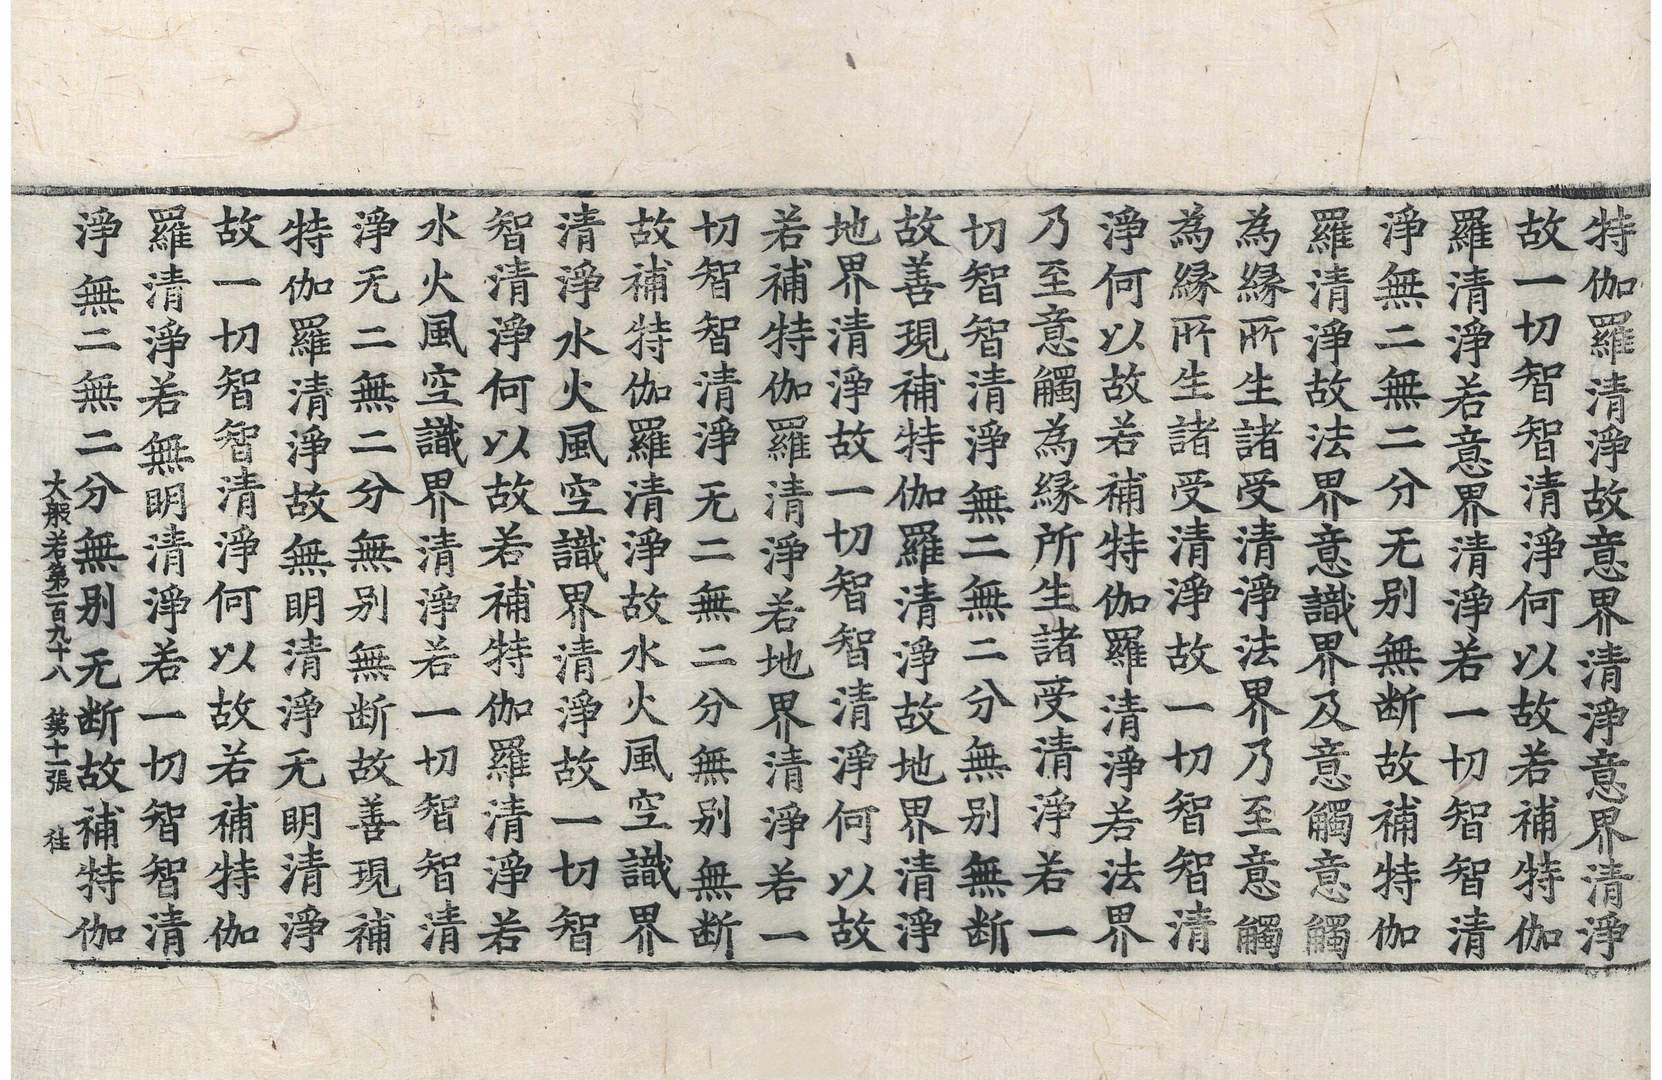 特伽羅清淨故意界清淨意界清淨
故一切智智清淨何以故若補特伽
羅清淨若意界清淨若一切智智清
淨無二無二分无别無断故補特伽
羅清淨故法界意識界及意觸意觸
為緣所生諸受清淨法界乃至意觸
為緣所生諸受清淨故一切智智清
淨何以故若補特伽羅清淨若法界
乃至意觸為緣所生諸受清淨若一
切智智清淨無二無二分無别無断
故善現補特伽羅清淨故地界清淨
地界清淨故一切智智清淨何以故
若補特伽羅清淨若地界清淨若一
切智智清淨无二無二分無别無断
故補特伽羅清淨故水火風空識界
清淨水火風空識界清淨故一切智
智清淨何以故若補特伽羅清淨若
水火風空識界清淨若一切智智清
淨无二無二分無别無断故善現補
特伽羅清淨故無明清淨无明清淨
故一切智智清淨何以故若補特伽
羅清淨若無明清淨若一切智智清
淨無二無二分無别无断故補特伽
大般若第一百九十八 第十一張 往